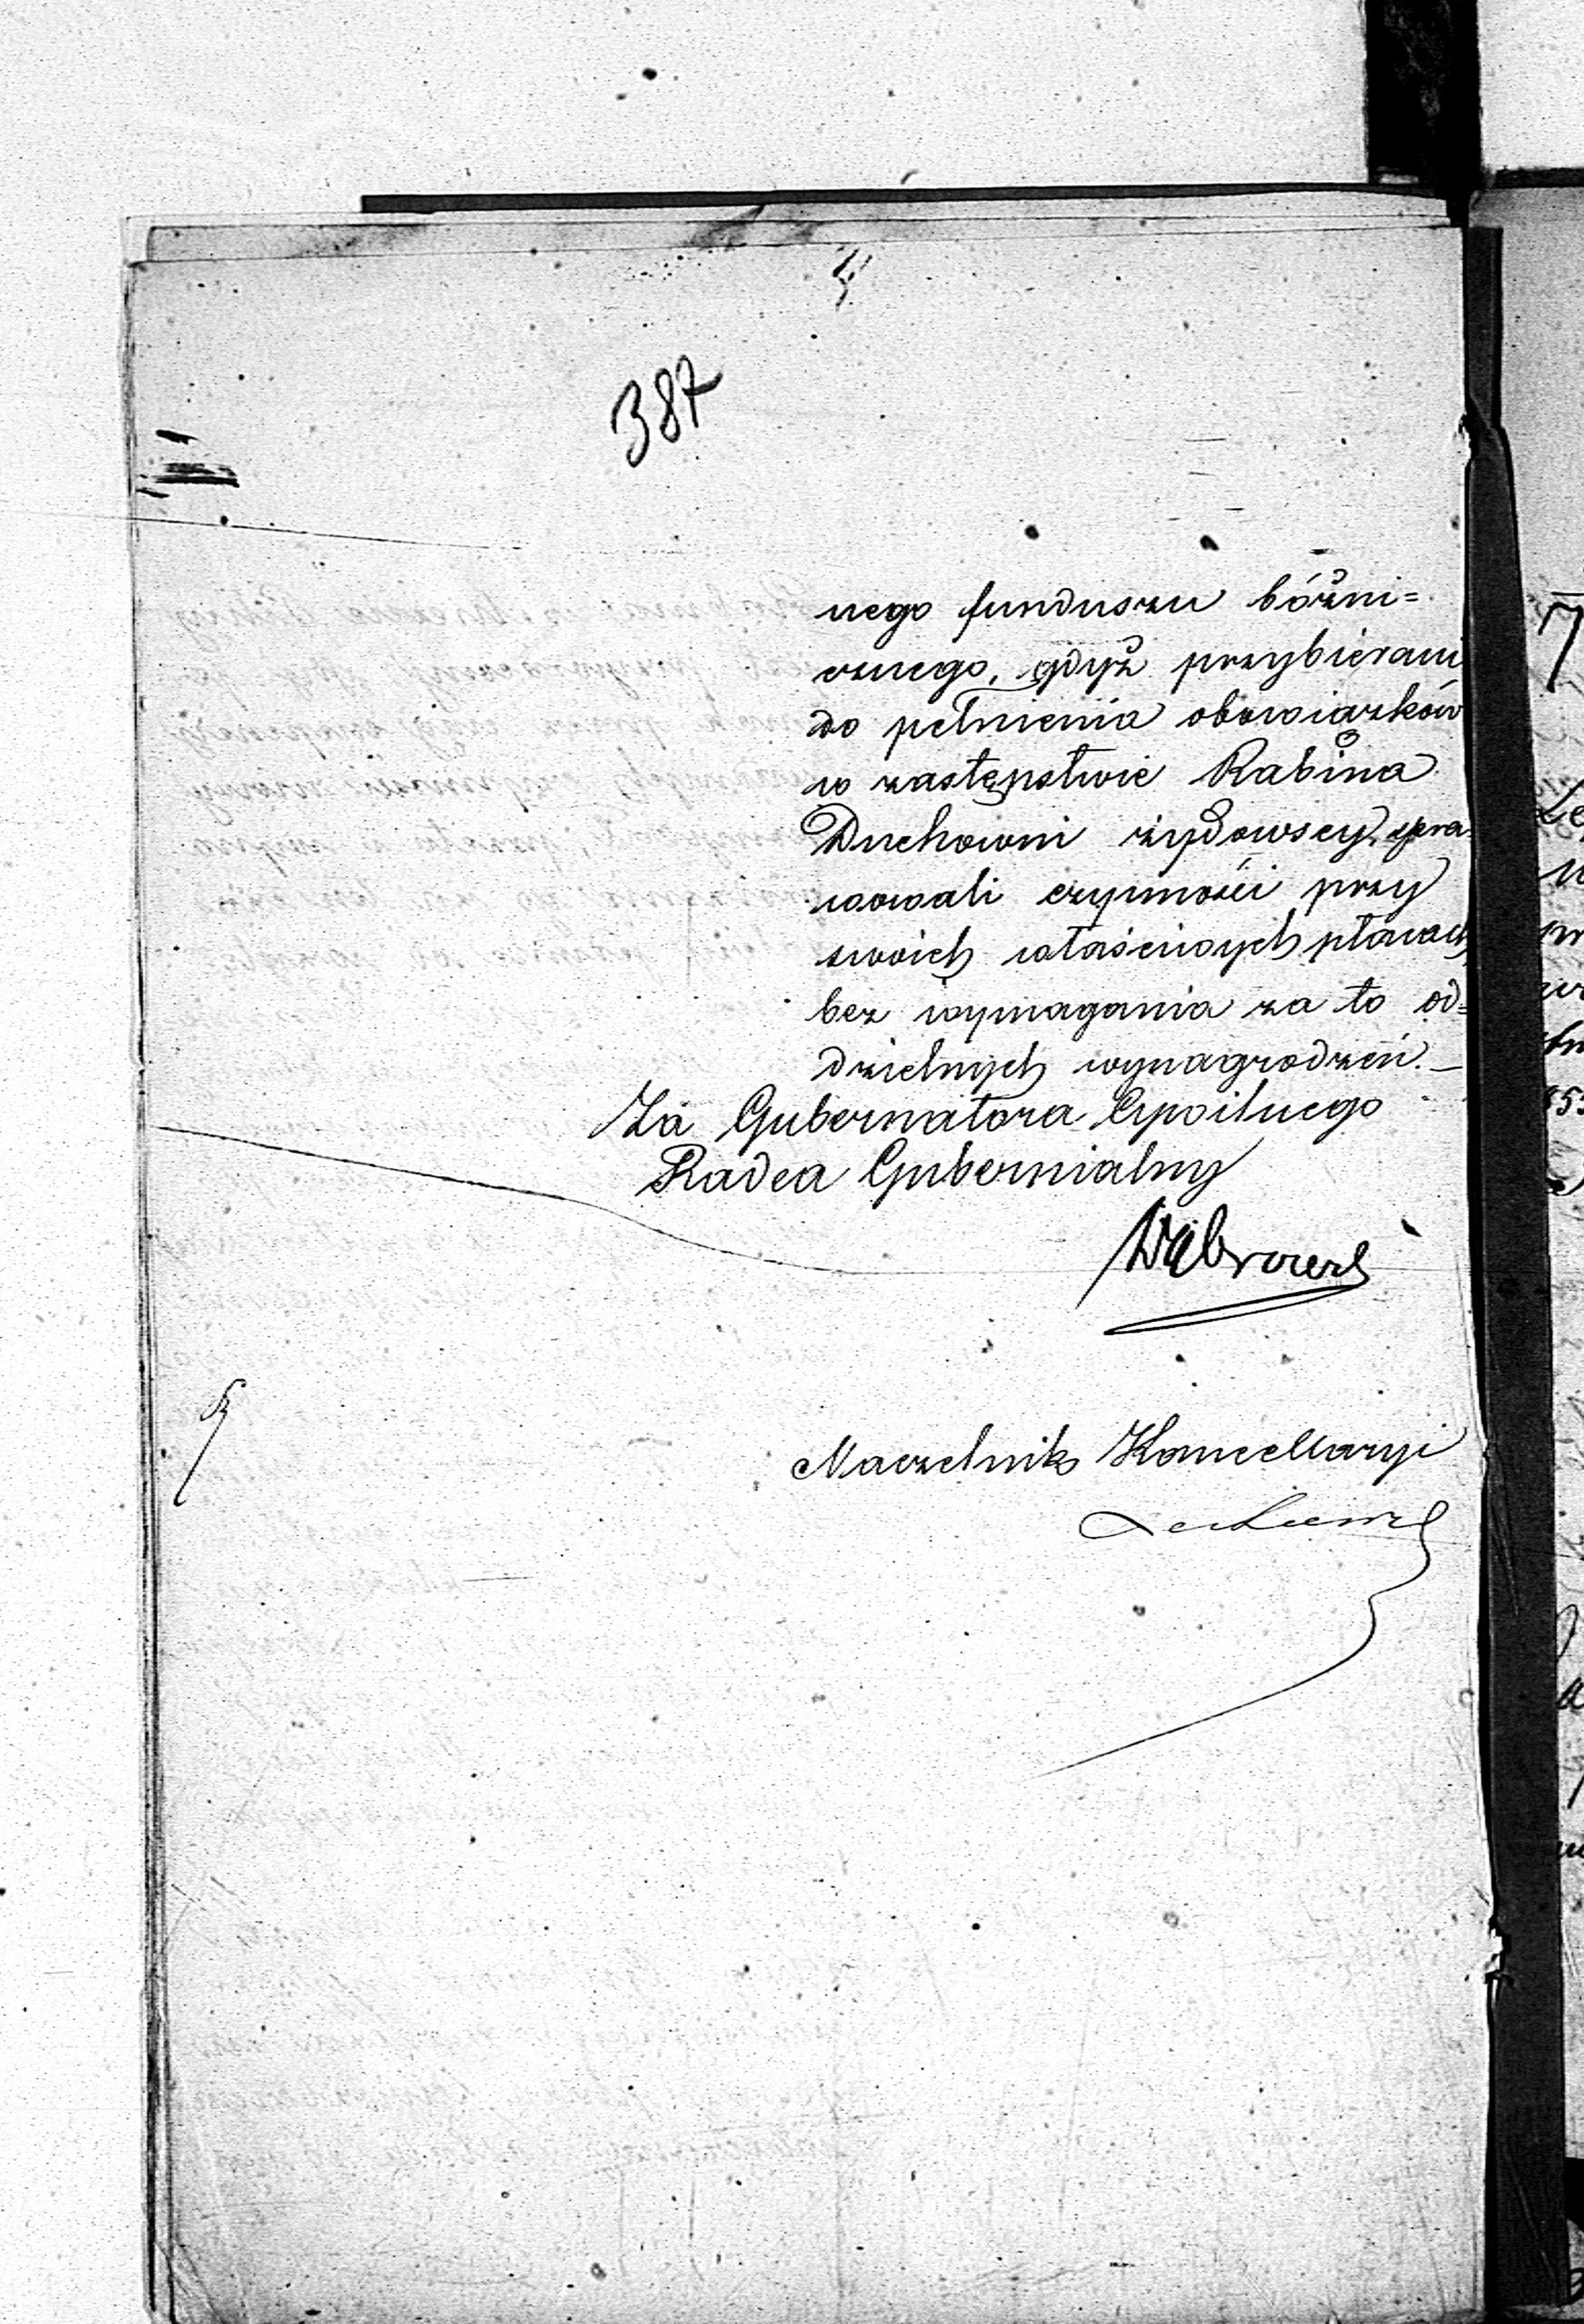 387
nego funduszu bóżni=
cznego, gdyż przybierani
do pełnienia obowiązków
w zastępstwie Rabina
Duchowni żydowscy, spra=
wowali czynności przy
swoich właściwych płacach
bez wymagania za to od=
dzielnych wynagrodzeń.—
Za Gubernatora Cywilnego
Radca Gubernialny
Naczelnik Kancellaryi